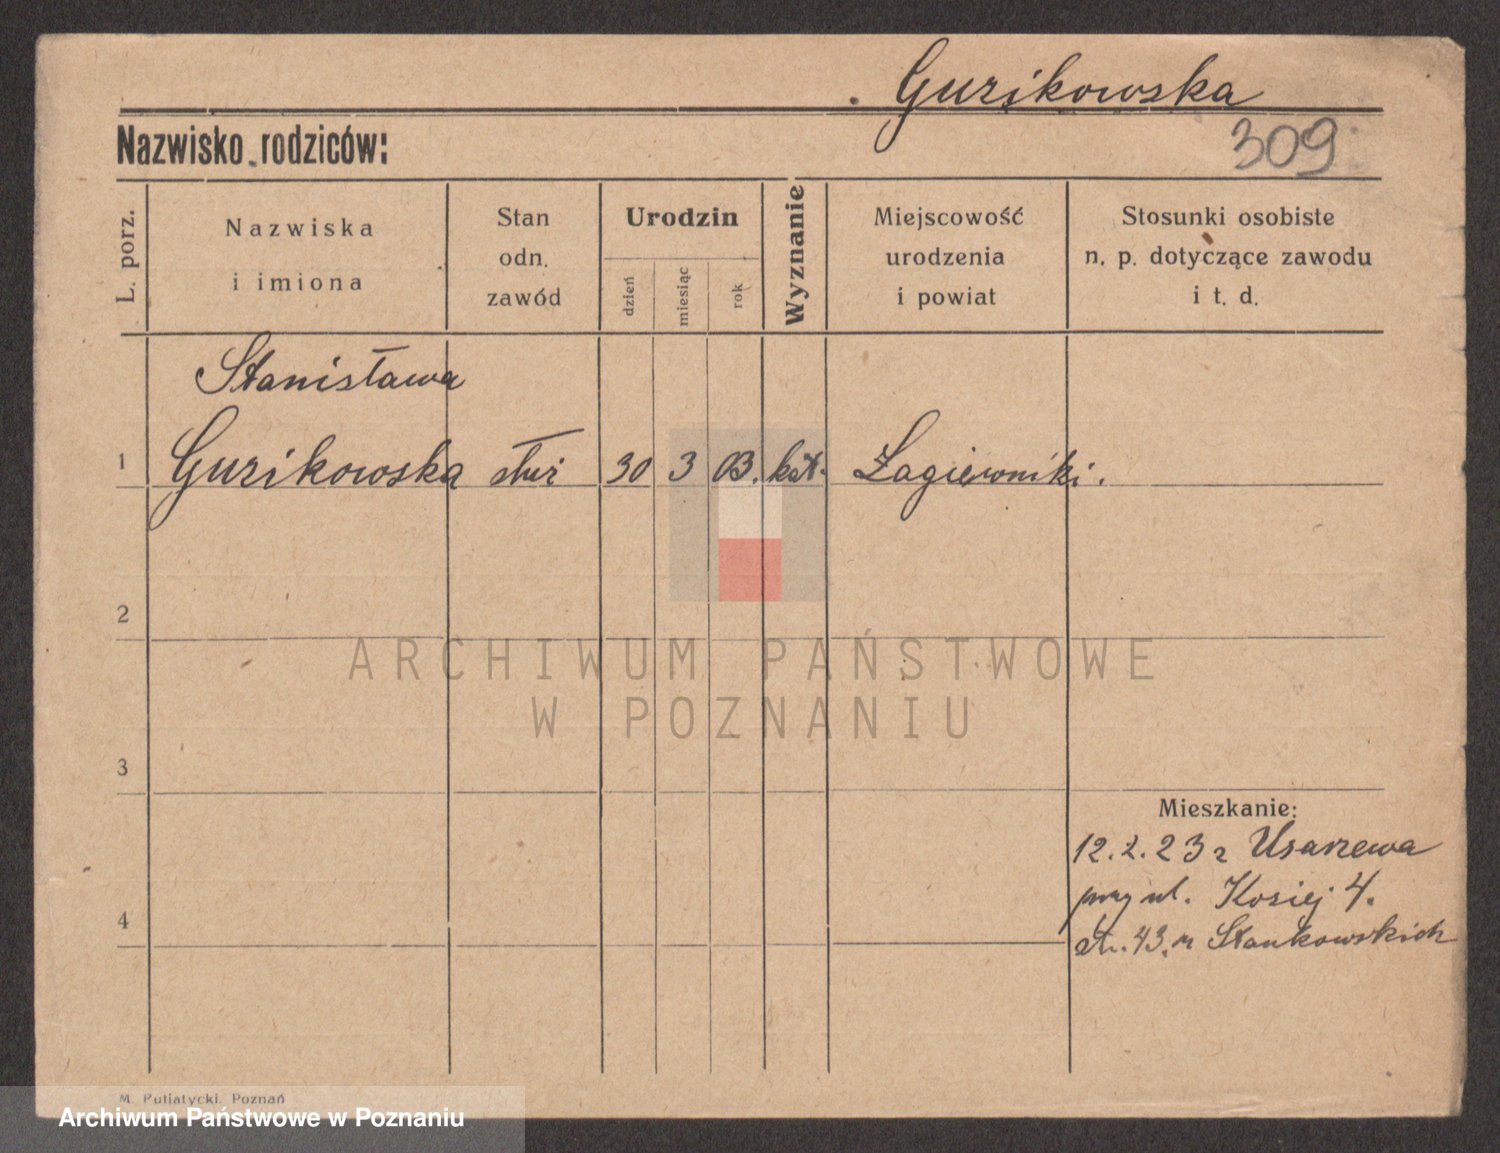 Gurikowska
Nazwisko rodziców:
309
L. porz.
Nazwiska
i imiona
Stan
odn.
zawód
Urodzin
dzień
miesiąc
rok
Wyznanie
Miejscowość
urodzenia
i powiat
Stosunki osobiste
n. p. dotyczące zawodu
i t. d.
Stanisława
1 Gurikowska służ 30 3 03. kat. Łagiewniki.
2
ARCHIWUM PAŃSTWOWE
W POZNANIU
3
Mieszkanie:
12.2.23 z Usarzewa
przy ul. Koziej 4.
4
43. Stankowskich
M. Putiatycki, Poznań
Archiwum Państwowe w Poznaniu